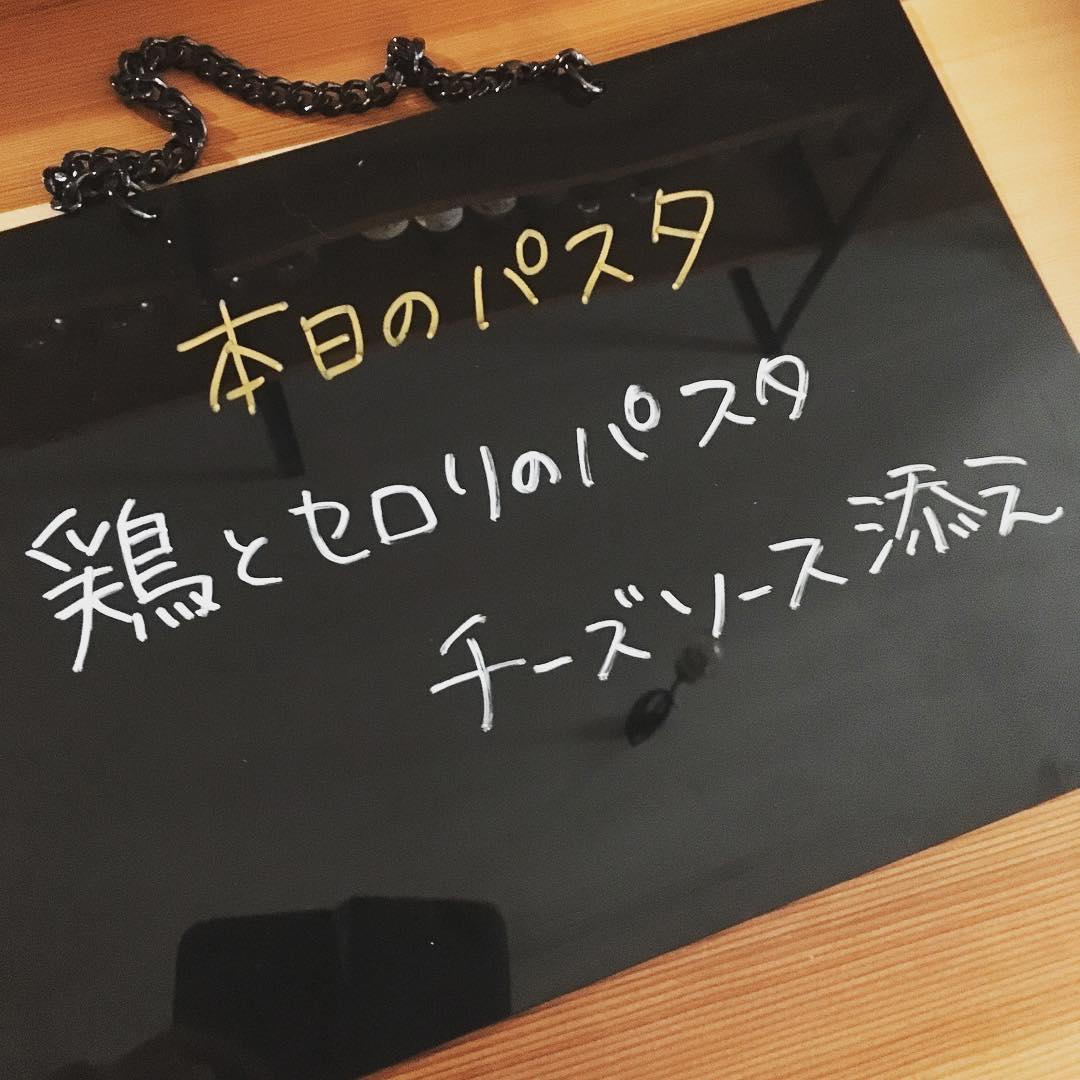 本日のパスタ
鶏とセロリのパスタ
チーズソース添え